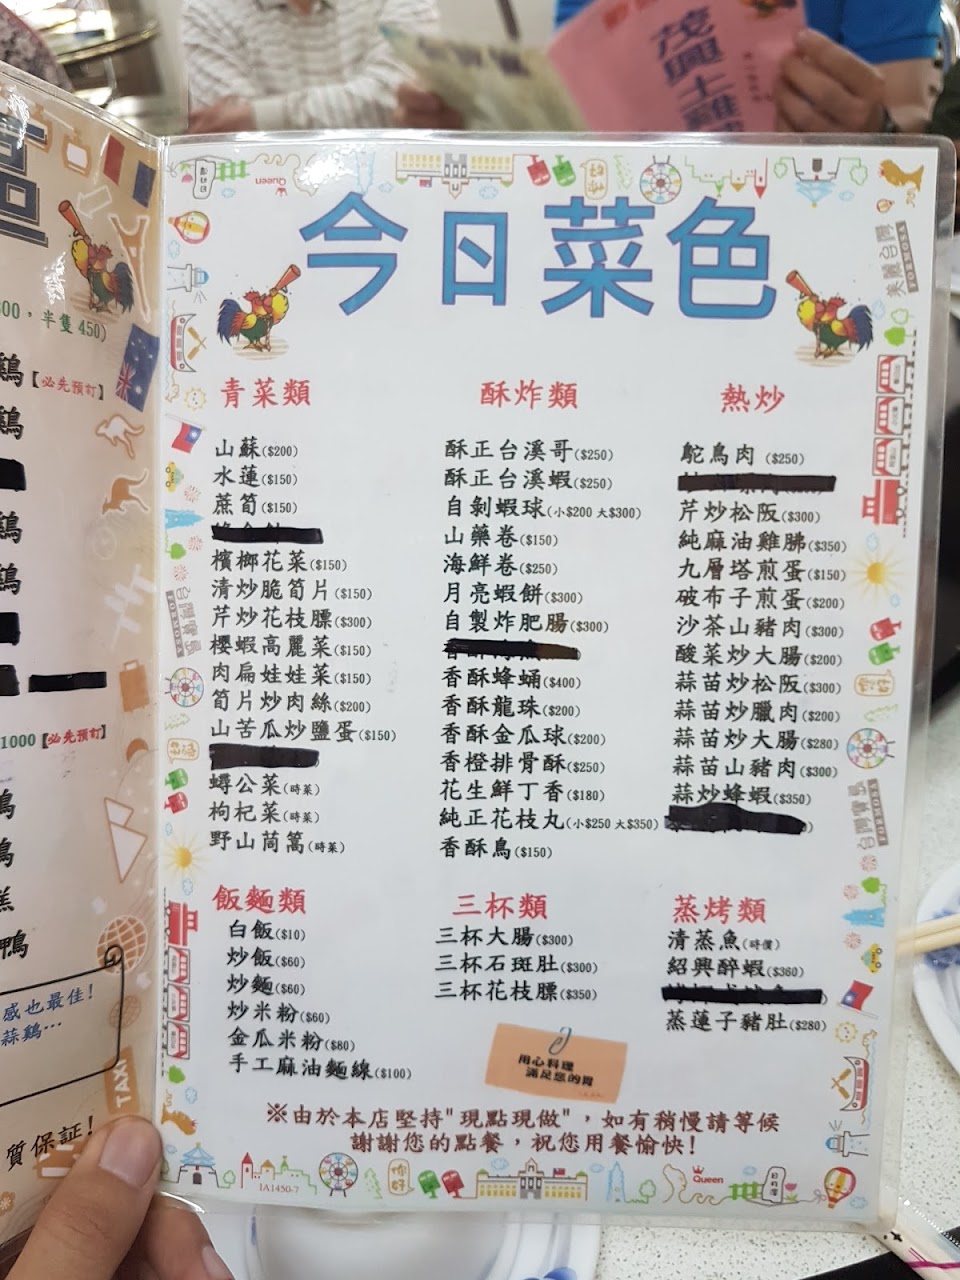 茂興土雞
00，半隻450)
鷄【必先預訂】
鷄
鷄
鷄
1000【必先預訂】
鴨
感也最佳！
蒜鷄…
質保証！
TAXI
今日菜色
青菜類
山蘇($200)
水蓮($150)
蔗筍($150)
檳榔花菜($150)
清炒脆筍片($150)
芹炒花枝膘($300)
櫻蝦高麗菜($150)
肉扁娃娃菜($150)
筍片炒肉絲($200)
山苦瓜炒鹽蛋($150)
蟳公菜(時菜)
枸杞菜(時菜)
野山茼篙(時菜)
酥炸類
酥正台溪哥($250)
酥正台溪蝦($250)
自剝蝦球(小$200 大$300)
山藥卷($150)
海鮮卷($250)
月亮蝦餅($300)
自製炸肥腸($300)
香酥蜂蛹($400)
香酥龍珠($200)
香酥金瓜球($200)
香橙排骨酥($250)
花生鮮丁香($180)
純正花枝丸(小$250 大$350)
香酥鳥($150)
熱炒
鴕鳥肉 ($250)
芹炒松阪($300)
純麻油雞胇($350)
九層塔煎蛋($150)
破布子煎蛋($200)
沙茶山豬肉($300)
酸菜炒大腸($200)
蒜苗炒松阪($300)
蒜苗炒臘肉($200)
蒜苗炒大腸($280)
蒜苗山豬肉($300)
蒜炒蜂蝦($350)
飯麵類
白飯($10)
炒飯($60)
炒麵($60)
炒米粉($60)
金瓜米粉($80)
手工麻油麵線($100)
三杯類
三杯大腸($300)
三杯石斑肚($300)
三杯花枝膘($350)
蒸烤類
清蒸魚(時價)
紹興醉蝦($360)
蒸蓮子豬肚($280)
用心料理
滿足您的胃
※由於本店堅持"現點現做"，如有稍慢請等候
謝謝您的點餐，祝您用餐愉快！
IA1450-7
Queen
Queen
美麗台灣
FORMOSA